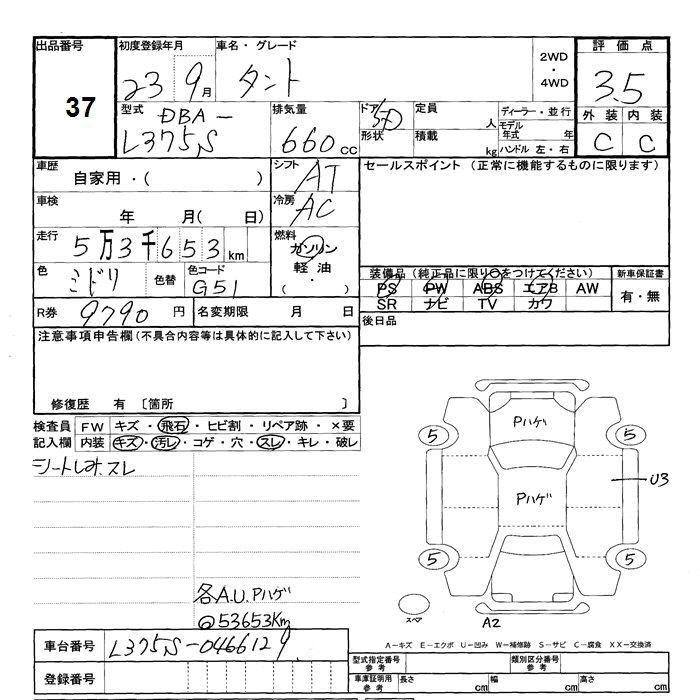 出品番号 37
初度登録年月 23 9月
車名・グレード タント
2WD・4WD
評価点 3.5
型式 DBA-L375S
排気量 660cc
ドア 5D
形状
定員 人
積載 kg
ディーラー・並行
モデル年式 年
ハンドル 左・右
外装 内装
C C
車歴 自家用・( )
シフト AT
セールスポイント (正常に機能するものに限ります)
車検 年 月( 日)
冷房 AC
走行 5万3千653km
燃料 ガソリン
軽油
( ・ )
色 ミドリ 色替 色コード G51
装備品 (純正品に限り○をつけてください)
PS PW ABS エアB AW
SR ナビ TV カワ
新車保証書
有・無
R券 9790円 名変期限 月 日
後日品
注意事項申告欄(不具合内容等は具体的に記入して下さい)
修復歴 有 〔箇所 〕
検査員記入欄
FW キズ・飛石・ヒビ割・リペア跡・×要
内装 キズ・汚レ・コゲ・穴・スレ・キレ・破レ
シートしみ、スレ
各A.U.Pハゲ
@53653Km
Pハゲ
Pハゲ
5 5
5 5
U3
スペア
A2
A-キズ E-エクボ U-凹み W-補修跡 S-サビ C-腐食 XX-交換済
車台番号 L375S-0466129
登録番号
型式指定番号 参考
類別区分番号 参考
車庫証明用 参考
長さ cm 幅 cm 高さ cm